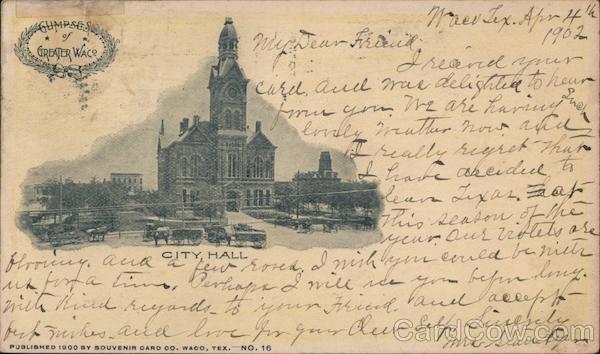 GLIMPSES
of
GREATER WACO
Waco Tex. Apr 4th
1902
My Dear Friend
I received your
card and was delighted to hear
from you We are having such
lovely weather now and
I really regret that
I have decided to
leave Texas at
this season of the
year Our violets are
CITY HALL
blooming and a few roses. I wish you could be with
us for a time. Perhaps I will see you before long
with kind regards to your Friend and accept
best wishes and love for your Dear Self Sincerely
Mrs
PUBLISHED 1900 BY SOUVENIR CARD CO. WACO, TEX. NO. 16
CardCow.com